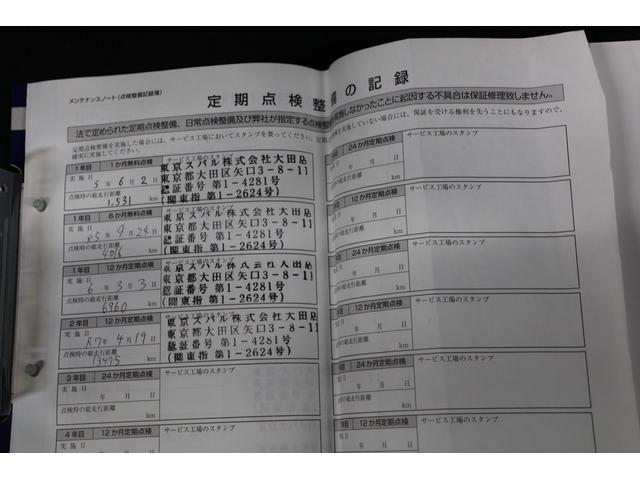 メンテナンスノート(点検整備記録簿)
定期点検整
備の記録
法で定められた定期点検整備、日常点検整備及び弊社が指定する点検整
実施しなかったことに起因する不具合は保証修理致しません。
定期点検整備を実施した場合には、サービス工場においてスタンプを貰ってください。定期
実施していない場合には、保証を受ける権利を失うことにもなりますので、
確実に実施してください。
1年目 1か月無料点検 サービス工場のスタンプ
実施日 5年 6月 2日
点検時の総走行距離
1,531 km
東京スバル株式会社大田店
東京都大田区矢口3-8-11
認証番号 第1-4281号
(関東指 第1-2624号)
1年目 6か月無料点検 サービス工場のスタンプ
実施日 R5年 9月 24日
点検時の総走行距離
4016 km
東京スバル株式会社大田店
東京都大田区矢口3-8-11
認証番号 第1-4281号
(関東指 第1-2624号)
1年目 12か月定期点検 サービス工場のスタンプ
実施日 年 3月 3日
点検時の総走行距離
6960 km
東京スバル株式会社大田店
東京都大田区矢口3-8-11
認証番号 第1-4281号
(関東指 第1-2624号)
2年目 12か月定期点検 サービス工場のスタンプ
実施日 R7年 4月 19日
点検時の総走行距離
13475 km
東京スバル株式会社大田店
東京都大田区矢口3-8-11
認証番号 第1-4281号
(関東指 第1-2624号)
3年目 24か月定期点検 サービス工場のスタンプ
実施日 年 月 日
点検時の総走行距離
km
4年目 12か月定期点検 サービス工場のスタンプ
実施日 年 月 日
24か月定期点検 サービス工場のスタンプ
年 月 日
総走行距離
km
12か月定期点検 サービス工場のスタンプ
年 月 日
総走行距離
km
12か月定期点検 サービス工場のスタンプ
年 月 日
総走行距離
km
24か月定期点検 サービス工場のスタンプ
年 月 日
総走行距離
km
12か月定期点検 サービス工場のスタンプ
年 月 日